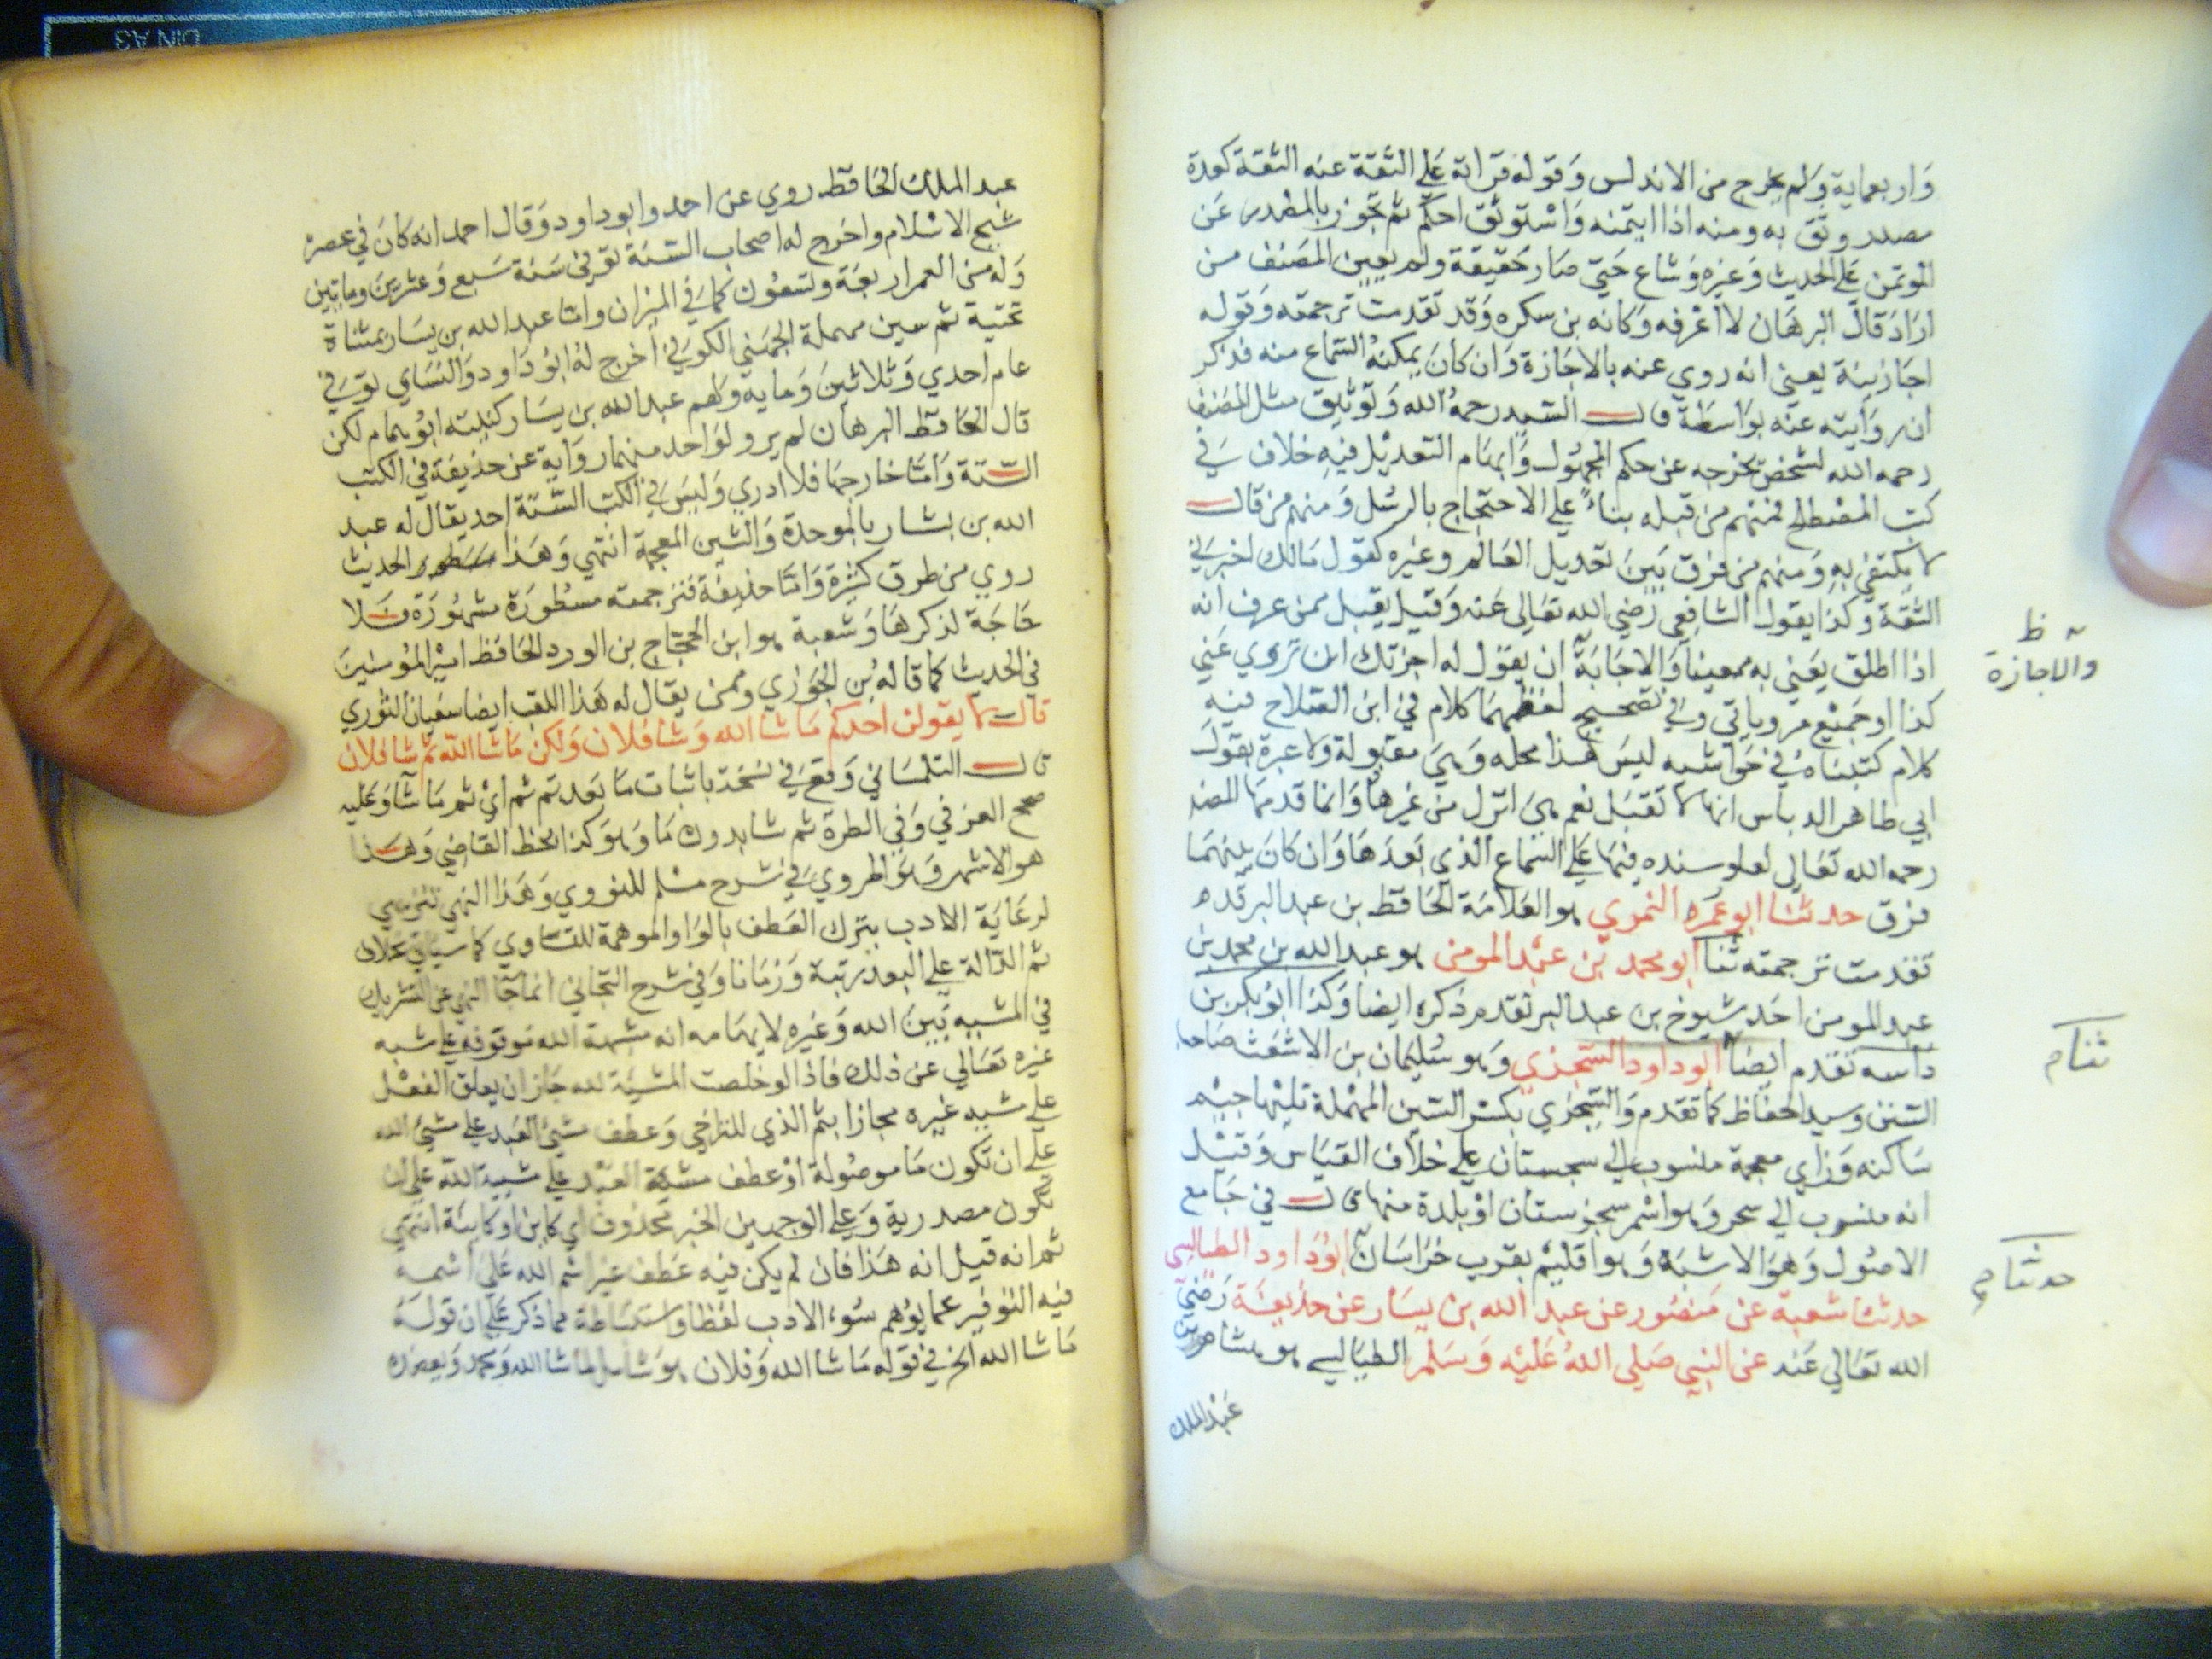 واربعماية ولم يخرج من الاندلس وقوله قراة علي الثقة عنه الثقة كعدة
مصدر وثق به ومنه اذا ايتمنه واستوثق احكم ثم تجوز بالمصدر عن
الموتمن علي الحديث وغيره وشاع حتي صار حقيقة ولم يعين المصنف من
اراد قال البرهان لا اعرفه وكانه بن سكره وقد تقدمت ترجمته وقوله
اجازنية يعني انه روي عنه بالاجازة وان كان يمكنه السماع منه فذكر
ان روايته عنه بواسطة قال السيد رحمه الله وتوثيق مثل المصنف
رحمه الله لشخص يخرجه عن حكم المجهول وابهام التعديل فيه خلاف في
كتب المصطلح فمنهم من قبله بناء علي الاحتجاج بالرسل ومنهم من قال
لا يكتفي به ومنهم من فرق بين تعديل العالم وغيره كقول مالك اخبرني
الثقة وكذا يقول الشافعي رضي الله تعالي عنه وقيل يقبل ممن عرف انه
اذا اطلق يعني به معينا والاجابة ان يقول له اجزتك ان تروي عني
والاجازة ظ
كذا او جميع مروياتي وفي تصحيح لفظهما كلام في ابن الصلاح فيه
كلام كتبناه في حواشيه ليس هذا محله وهي مقبولة ولا عبرة بقول
ابي طاهر الدباس انها لا تقبل نعم هي انزل من غيرها وانما قدمها المصنف
رحمه الله تعالي لعلو سنده فيها علي السماع الذي بعدها وان كان بينهما
فرق حدثنا ابو عمره النمري هو العلامة الحافظ بن عبد البر قده
تقدمت ترجمته ثنا ابو محمد بن عبد المومن هو عبد الله بن محمد بن
عبد المومن احد شيوخ بن عبد البر تقدم ذكره ايضا وكذا ابو بكر بن
داسه تقدم ايضا ابو داود السجزي وهو سليمان بن الاشعث صاحب
ثنا م
السنن وسيد الحفاظ كما تقدم والسجزي بكسر السين المهملة تليها جيم
ساكنه وزاي معجمة منسوب الي سجستان علي خلاف القياس وقيل
انه منسوب الي سجز وهو اسم سجزستان او بلدة منها قال في جامع
الاصول وهو الاشبه وهو اقليم بقرب خراسان ابو داود الطيالسي
حدثنا م
حدثنا شعبة عن منصور عن عبد الله بن يسار عن حذيفة رضي
الله تعالي عنه عن النبي صلي الله عليه وسلم الطيالسي هو هشام بن
عبد الملك
عبد الملك الحافظ روي عن احمد وابو داود وقال احمد انه كان في عصره
شيخ الاسلام واخرج له اصحاب الستة توفي سنة سبع وعشرين وماتين
وله من العمر اربعة وتسعون كما في الميزان واما عبد الله بن يسار بمثناة
تحتية ثم سين مهملة الجهني الكوفي اخرج له ابو داود والنساي توفي
عام احدي وثلاثين وماية ولهم عبد الله بن يسار كنيته ابو همام لكن
قال الحافظ البرهان لم يرو لواحد منهما رواية عن حذيفة في الكتب
الستة واما خارجها فلا ادري وليس في الكتب الستة احد يقال له عبد
الله بن بشار بالموحدة والشين المعجمة انتهي وهذا الحديث
روي من طرق كثيرة واما حذيفة فترجمته مسطورة مشهورة فلا
حاجة لذكرها وشعبة هو ابن الحجاج بن الورد الحافظ امير المومنين
في الحديث كما قاله بن الجوزي وممن يقال له هذا اللقب ايضا سفيان الثوري
قال لا يقولن احدكم ما شا الله وشا فلان ولكن ما شا الله ثم شا فلان
قال التلمساني وقع في نسخة باثبات ما بعد ثم ثم اي ثم ما شا وعليه
صحح العزفي وفي الطرة ثم شا بدون ما وهو كذا بخط القاضي وهذا
هو الاشهر وهو المروي في شرح مسلم للنووي وهذا النهي تنزيهي
لرعاية الادب بترك العطف بالواو الموهمة للتساوي كما سياتي بخلاف
ثم الدالة علي البعد رتبة وزمانا وفي شرح التجاني انما جا النهي عن التشريك
في المشيه بين الله وغيره لايهامه انه مشية الله موقوفه علي مشيه
غيره تعالي عن ذلك فاذا لو خلصت المشية لله جاز ان يعلق الفعل
علي مشيه غيره مجازا بثم الذي للتراخي وعطف مشي العبد علي مشي الله
علي ان تكون ما موصولة او عطف مشية العبد علي مشية الله علي ان
تكون مصدرية وعلي الوجهين الخبر محذوف اي كاين او كاينة انتهي
ثم انه قيل انه هذا فان لم يكن فيه عطف غير اسم الله علي اسمه
فيه التوفير عما يوهم سوء الادب لفظا مما ذكر علي ان قوله
ما شا الله الخ في قوله ما شا الله وفلان هو شامل لما شا الله ومحمد